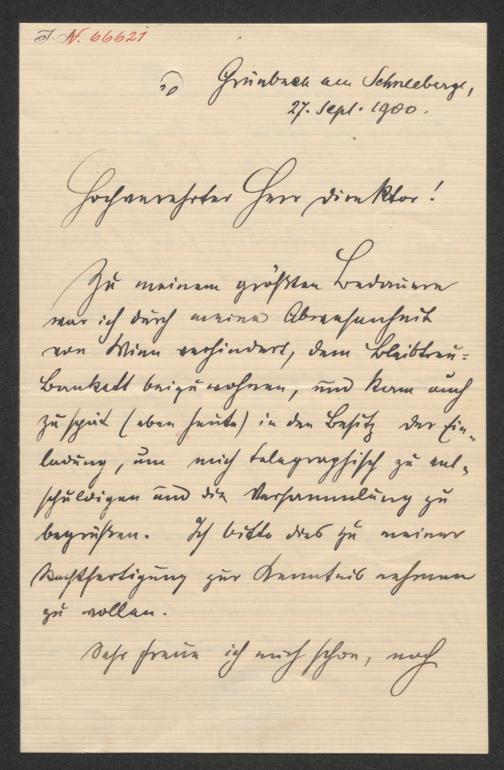 J. N. 66621
Grünbach am Schneeberge,
27. Sept. 1900.
Hochverehrter Herr Direktor!
Zu meinem größten Bedauern
war ich durch meine Abwesenheit
von Wien verhindert, dem Bleibtreu-
Bankett beizuwohnen, und kam auch
zu spät (eben heute) in den Besitz der Ein-
ladung, um mich telegraphisch zu ent-
schuldigen und die Versammlung zu
begrüßen. Ich bitte dies zu meiner
Rechtfertigung zur Kenntnis nehmen
zu wollen.
Sehr freue ich mich schon, nach